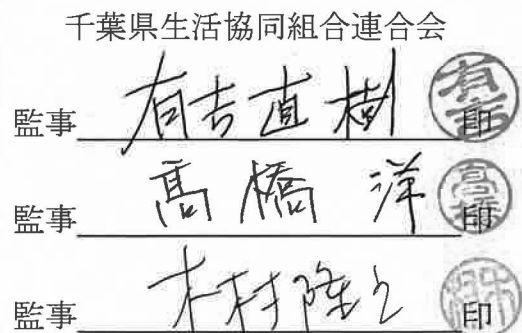 千葉県生活協同組合連合会
監事 有吉直樹 印
監事 髙橋 洋 印
監事 木村隆之 印